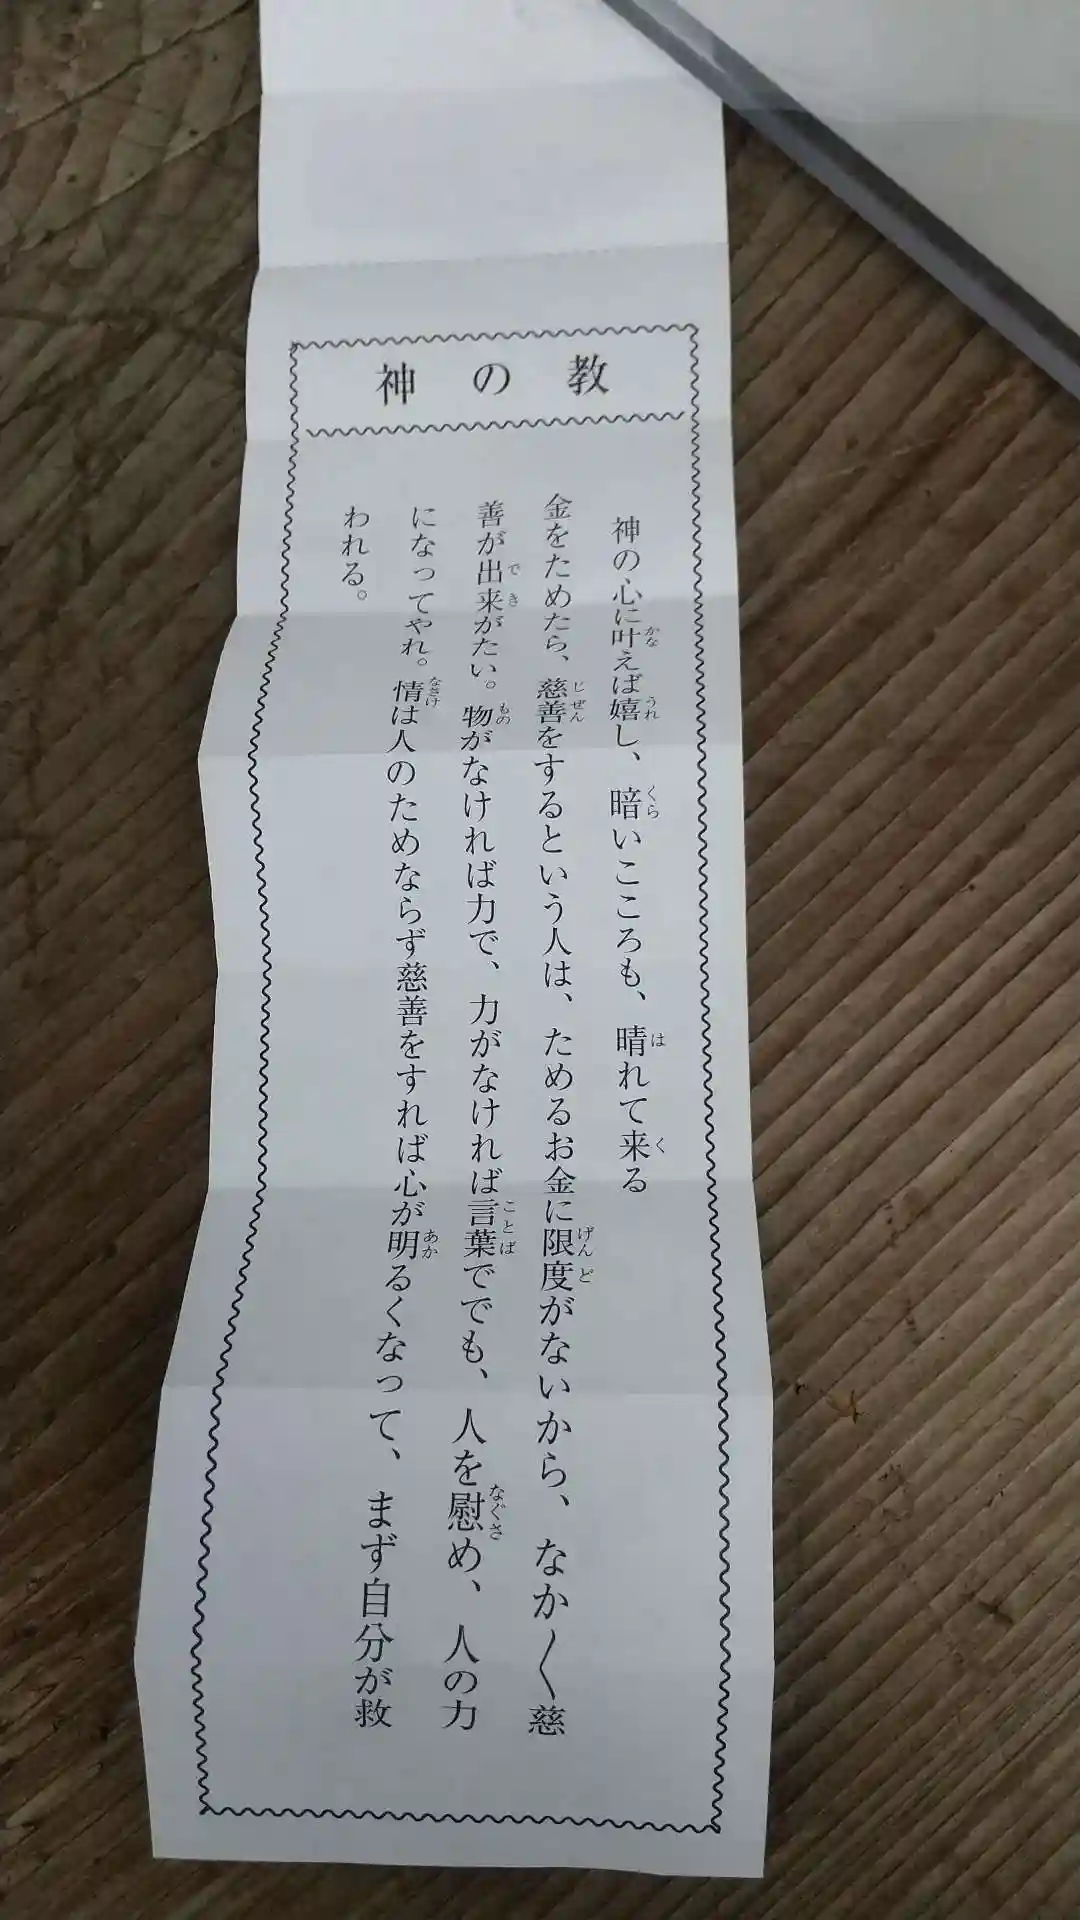 神の教
神の心に叶えば嬉し、暗いこころも、晴れて来る
金をためたら、慈善をするという人は、ためるお金に限度がないから、なか〱慈
善が出来がたい。物がなければ力で、力がなければ言葉ででも、人を慰め、人の力
になってやれ。情は人のためならず慈善をすれば心が明るくなって、まず自分が救
われる。